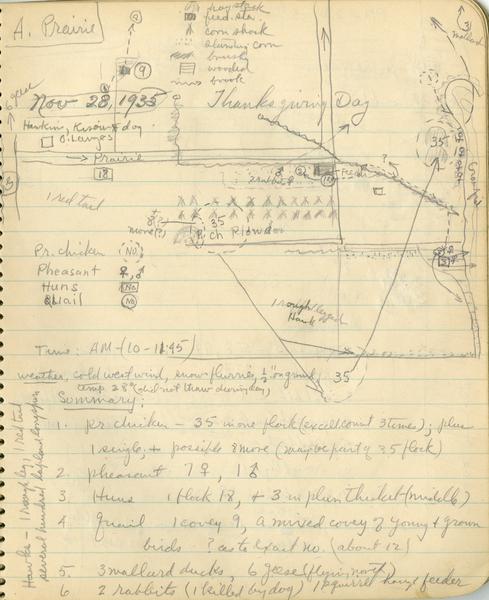 A. Prairie
hay stack
feed sta.
corn shock
standing corn
brush
wooded
brook
3
mallard
9
6 geese
Nov 28, 1935 Thanksgiving Day
Hawkin, & dog
Prairie
18
5
35
1 red tail
8?
more(?)
35
Plowed
Pr. chicken No.
Pheasant ♀, ♂
Huns No.
Quail No.
1 rough legged
Hawk
35
Time: AM - (10 - 11:45)
weather, cold west wind, snow flurries, ½" on ground,
temp. 28° (did not thaw during day)
Summary:
1. pr. chicken - 35 in one flock (excell. count 3 times); plus
1 single, + possible 8 more (maybe part of 35 flock)
2. pheasant 7 ♀, 1 ♂
3 Huns 1 flock 18, + 3 in plum thicket (middle)
4. Quail 1 covey 9, a mixed covey of young + grown
birds - ? as to exact no. (about 12)
5. 3 mallard ducks, 6 geese (flying north)
6 2 rabbits (1 killed by dog) 1 squirrel feeder
Hawks - 1 rough leg, 1 red tail
several hundred lapland longspur